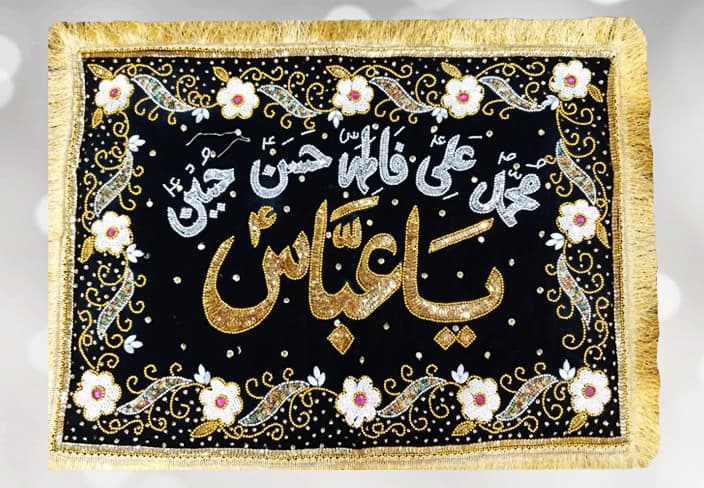 محمدؐ علیؑ فاطمہؑ حسنؑ حسینؑ
یا عباسؑ